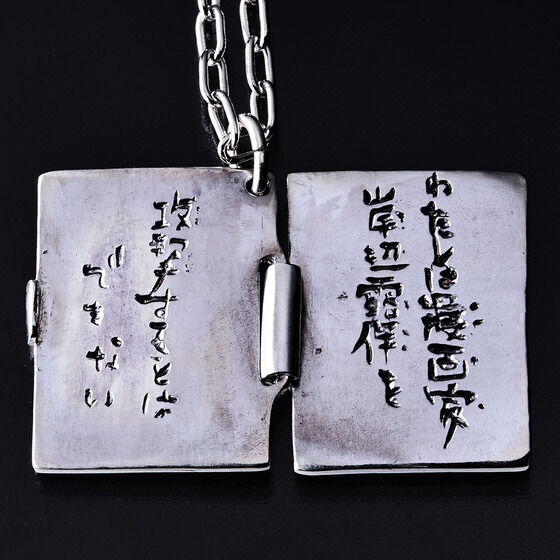 わたしは漫画家
岸辺露伴を
攻撃することが
できない